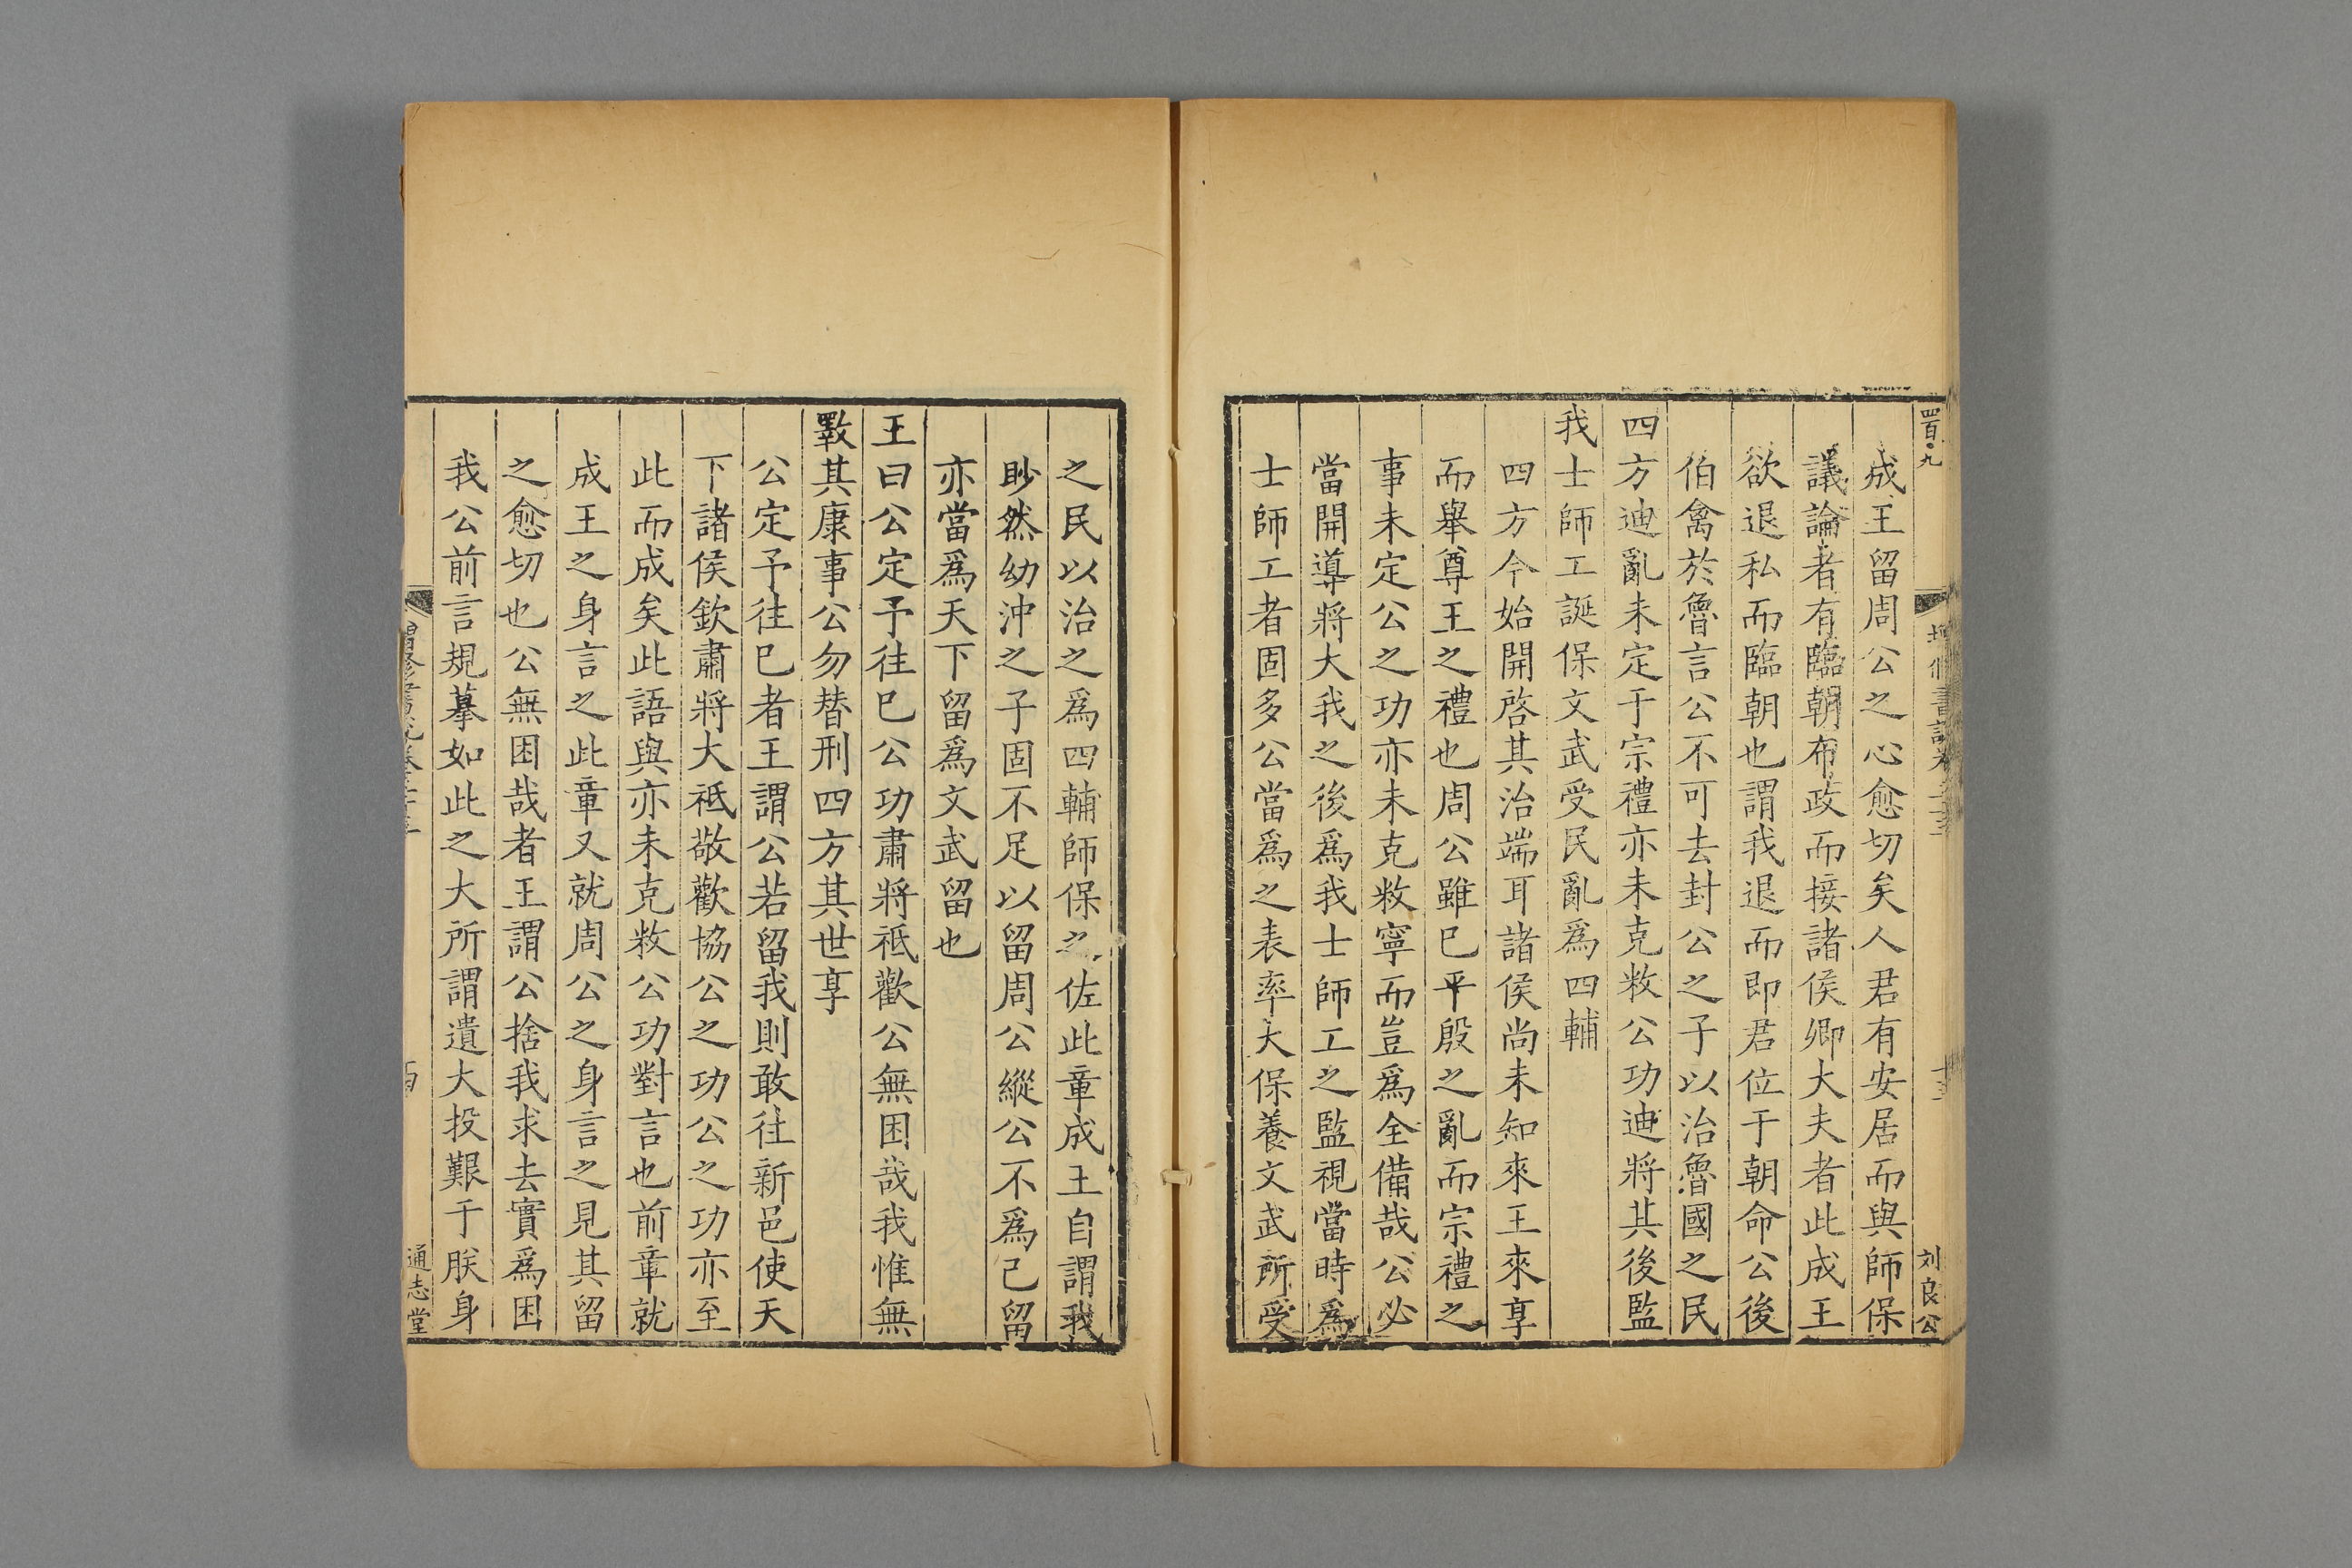 成王留周公之心愈切矣人君有安居而與師保
議論者有臨朝布政而接諸侯卿大夫者此成王
欲退私而臨朝也謂我退而即君位于朝命公後
伯禽於魯言公不可去封公之子以治魯國之民
四方迪亂未定于宗禮亦未克敉公功迪將其後監
我士師工誕保文武受民亂爲四輔
四方今始開啓其治端耳諸侯尚未知來王來享
而舉尊王之禮也周公雖已平殷之亂而宗禮之
事未定公之功亦未克敉寧而豈爲全備哉公必
當開導將大我之後爲我士師工之監視當時爲
士師工者固多公當爲之表率大保養文武所受
之民以治之爲四輔師保之佐此章成王自謂我
眇然幼沖之子固不足以留周公縱公不爲己留
亦當爲天下留爲文武留也
王曰公定予往已公功肅將祗歡公無困哉我惟無
斁其康事公勿替刑四方其世享
公定予往已者王謂公若留我則敢往新邑使天
下諸侯欽肅將大祗敬歡協公之功公之功亦至
此而成矣此語與亦未克敉公功對言也前章就
成王之身言之此章又就周公之身言之見其留
之愈切也公無困哉者王謂公捨我求去實爲困
我公前言規摹如此之大所謂遺大投艱于朕身
刘良公
通志堂